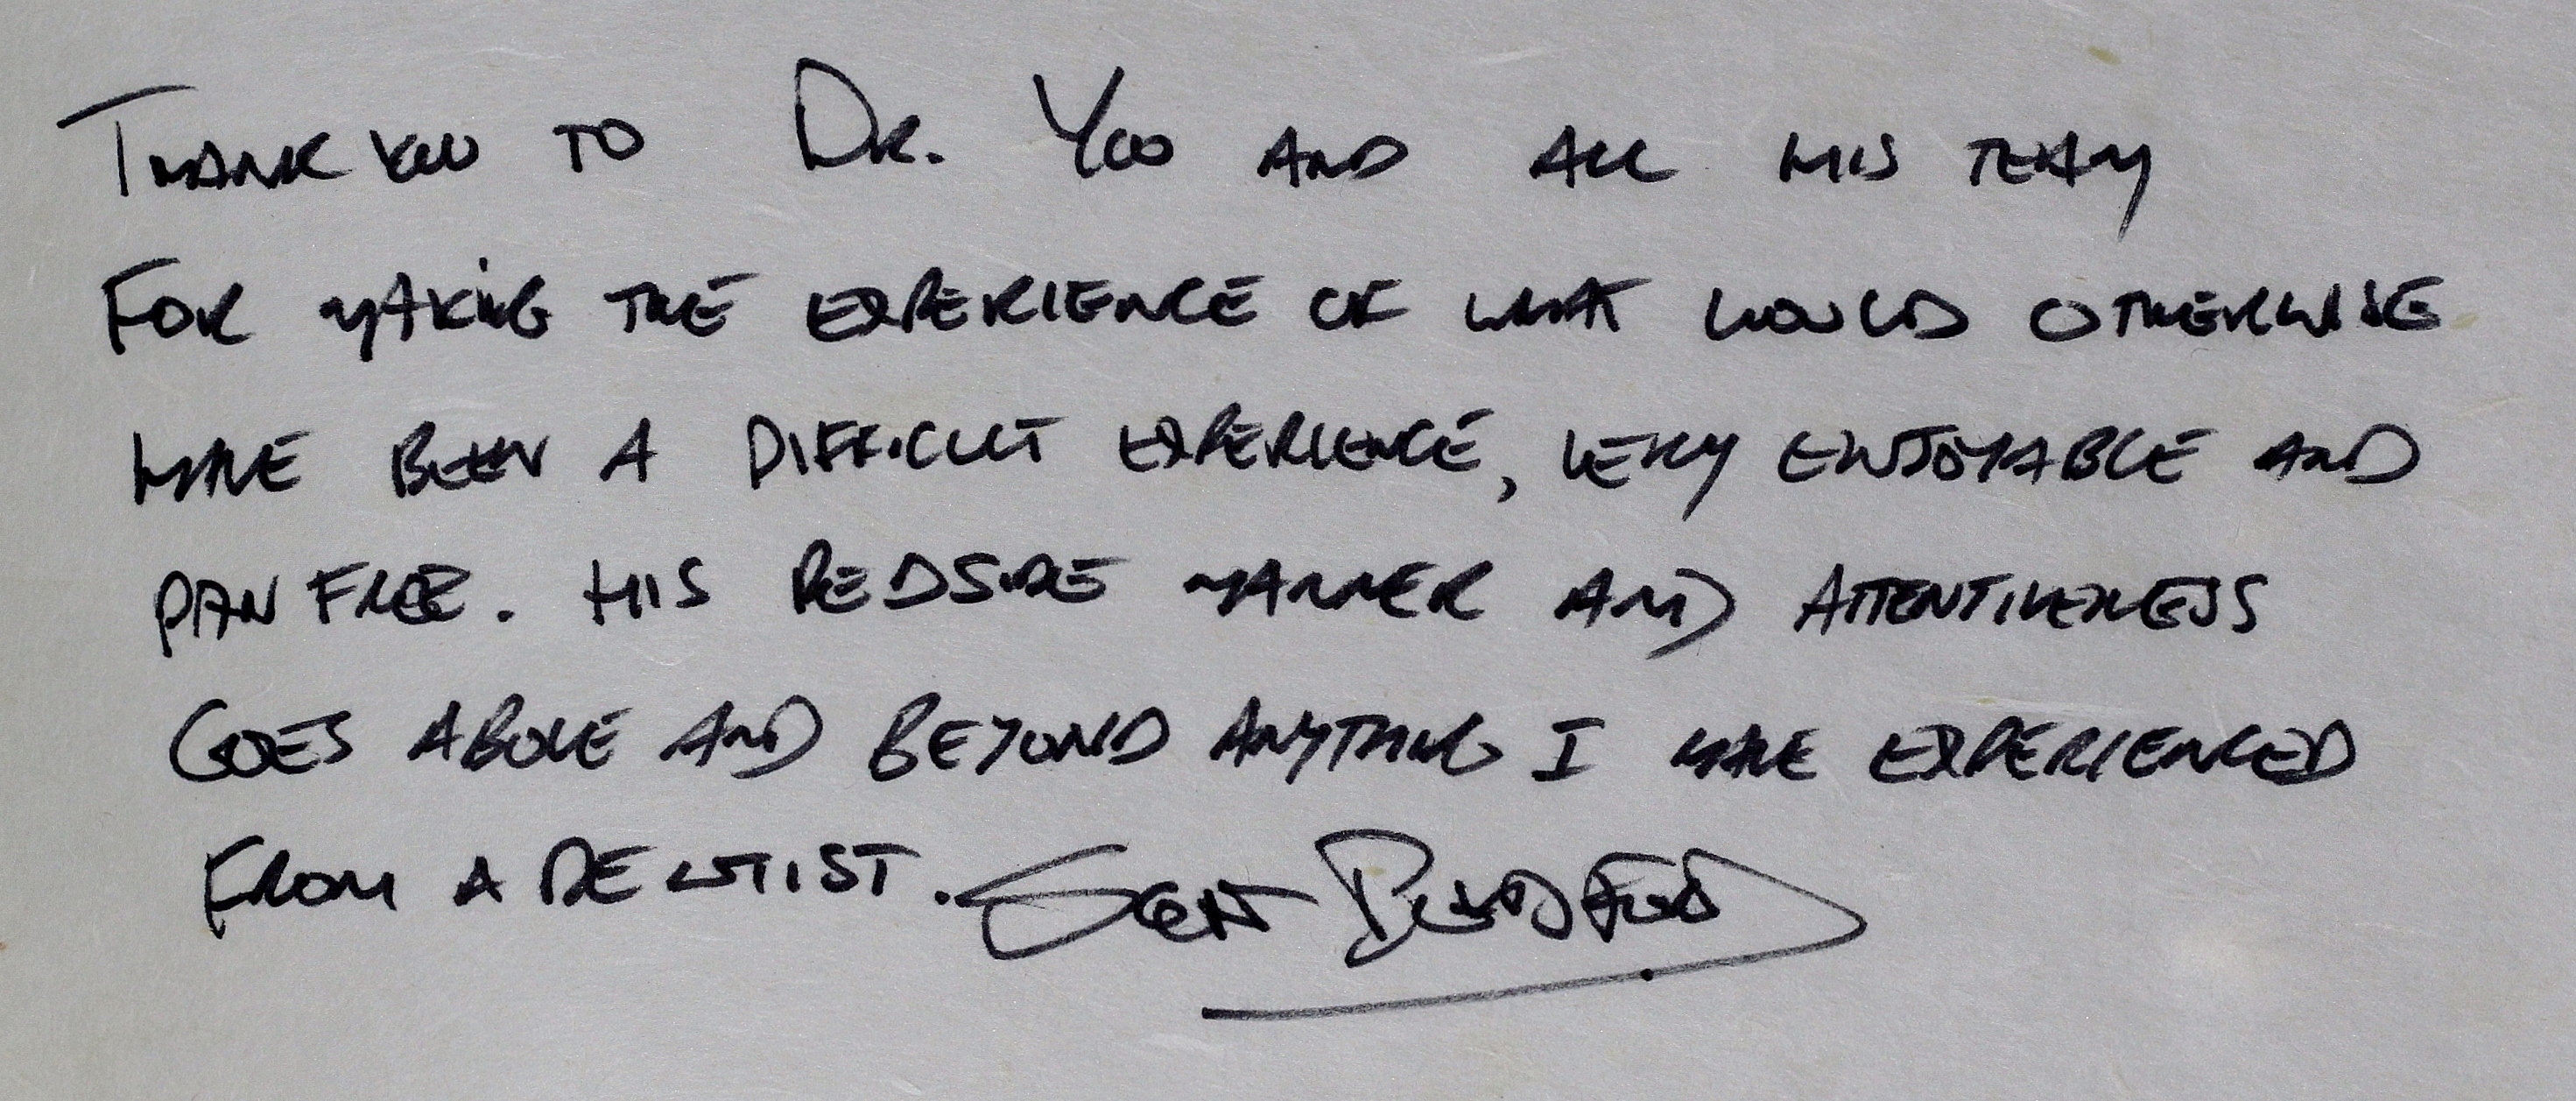 THANK YOU TO DR. YOO AND ALL HIS TEAM
FOR MAKING THE EXPERIENCE OF WHAT WOULD OTHERWISE
HAVE BEEN A DIFFICULT EXPERIENCE, VERY ENJOYABLE AND
PAIN FREE. HIS BEDSIDE MANNER AND ATTENTIVENESS
GOES ABOVE AND BEYOND ANYTHING I HAVE EXPERIENCED
FROM A DENTIST.